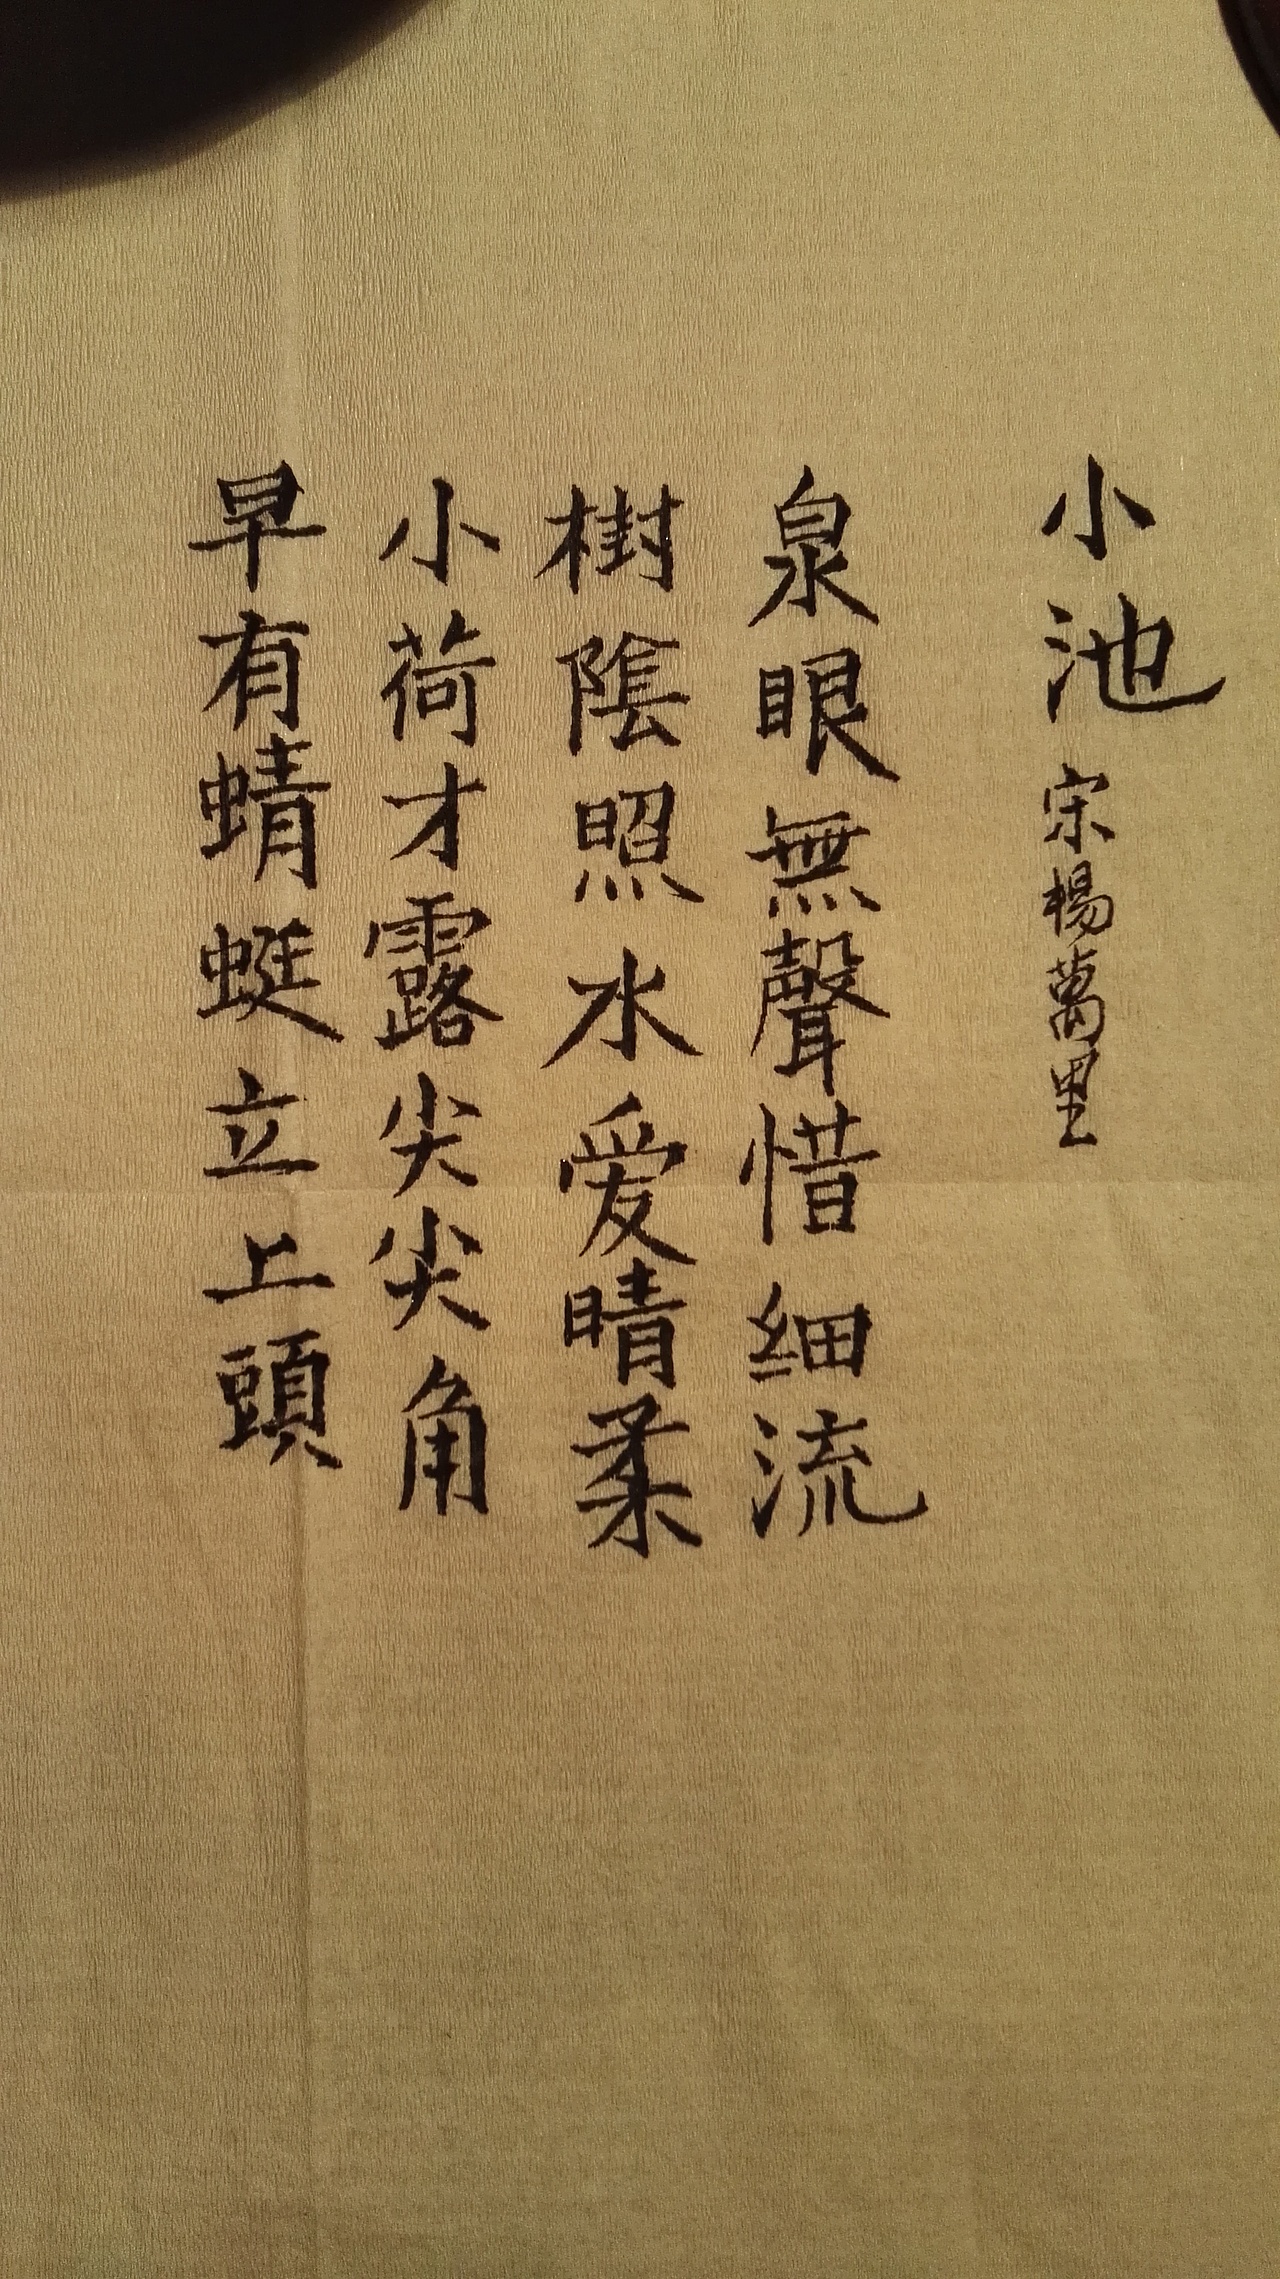 小池 宋楊萬里
泉眼無聲惜細流
樹陰照水爱晴柔
小荷才露尖尖角
早有蜻蜓立上頭